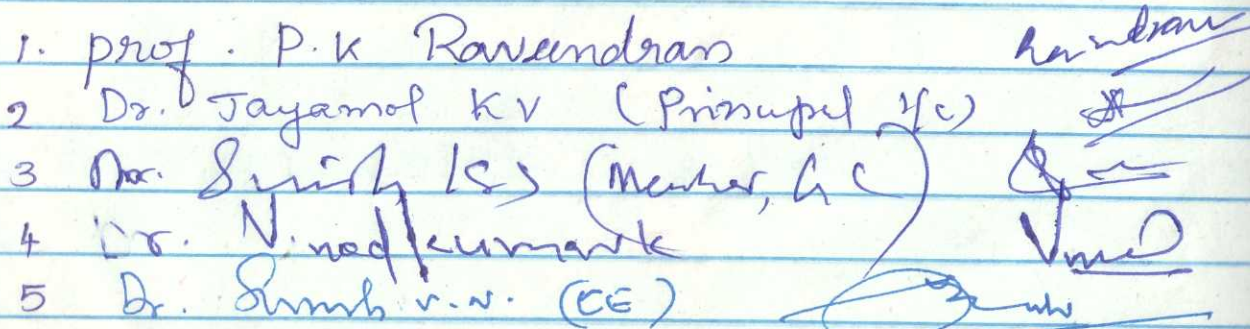 1. prof. P.K Raveendran
2 Dr. Jayamol KV (Principal I/C)
3 KS (Member, GC)
4 Dr. Vinodkumar K
5 Dr. V.N. (CE)